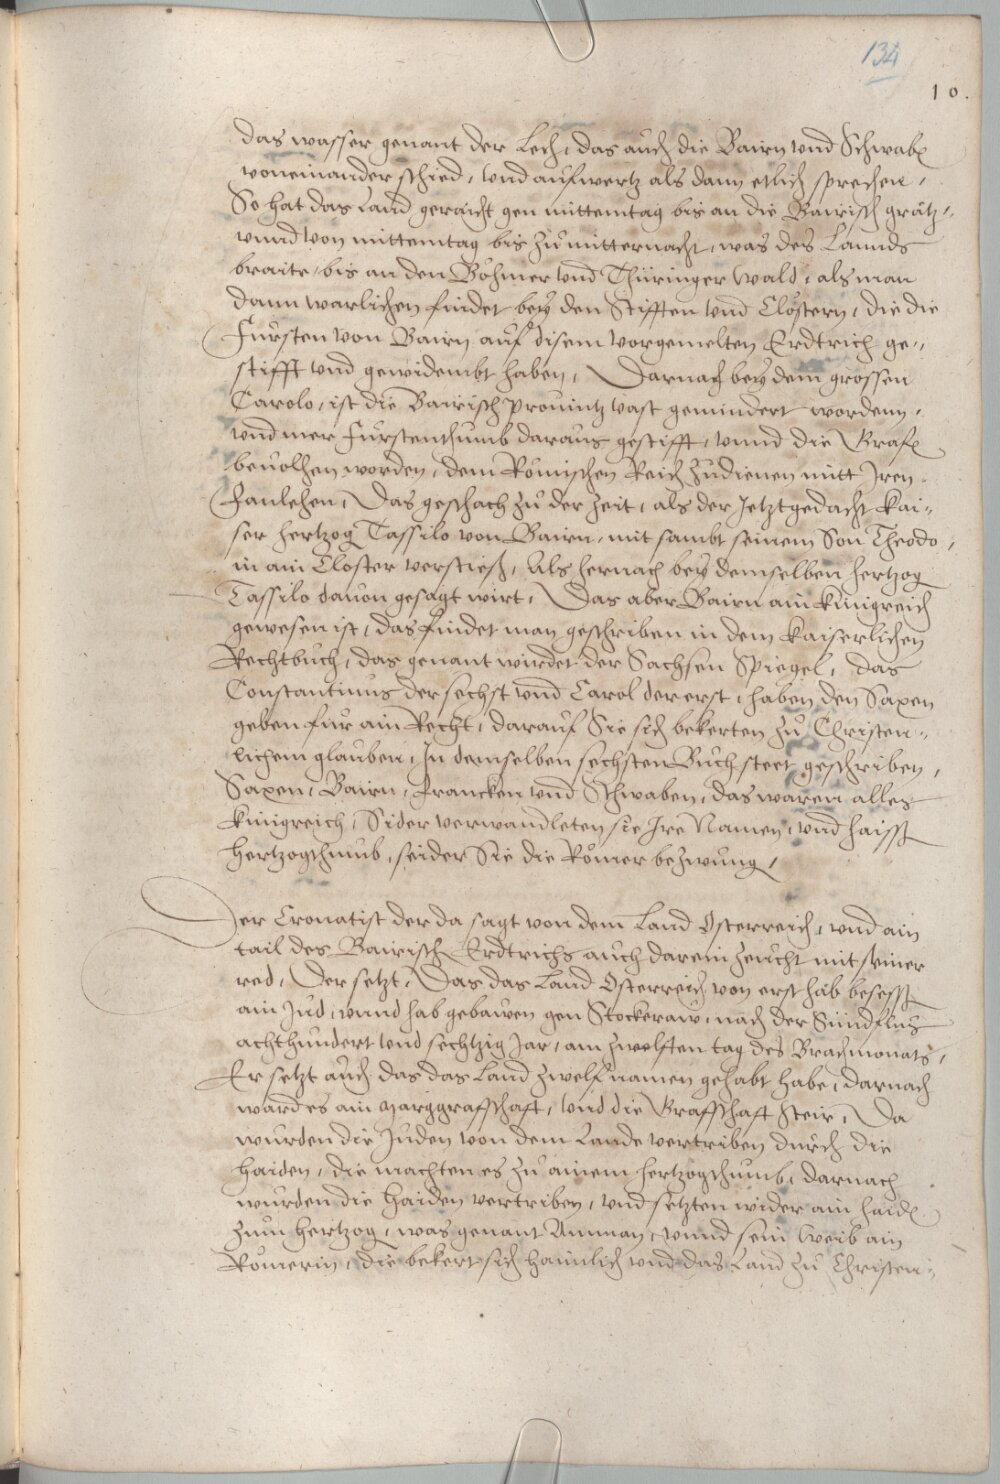 134
10.
das wasser genant der Lech, das auch die Bairn und Schwabn
voneinander schied, und aufwertz als dann etlich sprechen,
So hat das Land geraicht gen mittemtag bis an die Bairisch grätz,
unnd von mittemtag bis zu mitternacht, was des Lannds
braite, bis an den Böhmer und Thüringer wald, als man
dann warlichen findet bey den Stifften und Clöstern, die die
Fürsten von Bairn auf disem vorgemelten Erdtrich ge-
stifft und gewidembt haben, Darnach bey dem grossen
Carolo, ist die Bairisch Prouintz vast gemindert worden,
und mer Fürstenthumb daraus gestifft, unnd die Grafn
beuolhen worden, dem Römischen Reich zudienen mitt Iren
Fanlehen, Das geschach zu der zeit, als der Jetztgedacht Kai-
ser hertzog Tassilo von Bairn, mit sambt seinem Son Theodo,
in ain Closter verstieß, Als hernach bey demselben hertzog
Tassilo dauon gesagt wirt, Das aber Bairn ain künigreich
gewesen ist, das findet man geschriben in dem kaiserlichen
Rechtbuch, das genant wirdet der Sachsen Spiegel, das
Constantinus der sechst und Carol der erst, haben den Saxen
geben für ain Recht, darauf Sie sich bekerten zu Christen-
lichem glauben, In demselben sechsten Buch steet geschriben,
Saxen, Bairn, Francken und Schwaben, das waren alles
künigreich, Sider verwandleten sie Ire Namen, und haisst
hertzogthumb, seider Sie die Römer bezwung,
Der Cronatist der da sagt von dem Land Osterreich, und ain
tail des Bairisch Erdtrichs auch darein zeucht mit seiner
red, Der setzt, Das das Land Osterreich von erst hab besesst
ain Jud, unnd hab gebawen gen Stockeraw, nach der Sündflus
achthundert und sechtzig Jar, am zwelften tag des Brachmonats,
Er setzt auch das das Land zwelf namen gehabt habe, darnach
ward es ain Marggrafschaft, und die Graffschaft Steir, Da
wurden die Juden von dem Lande vertriben durch die
Haiden, die machten es zu ainem hertzogthumb, darnach
wurden die Haiden vertriben, und setzten wider ain haidn
zum hertzog, was genant Amman, unnd sein Weib ain
Römerin, die bekert sich haimlich und das Land zu Christen-